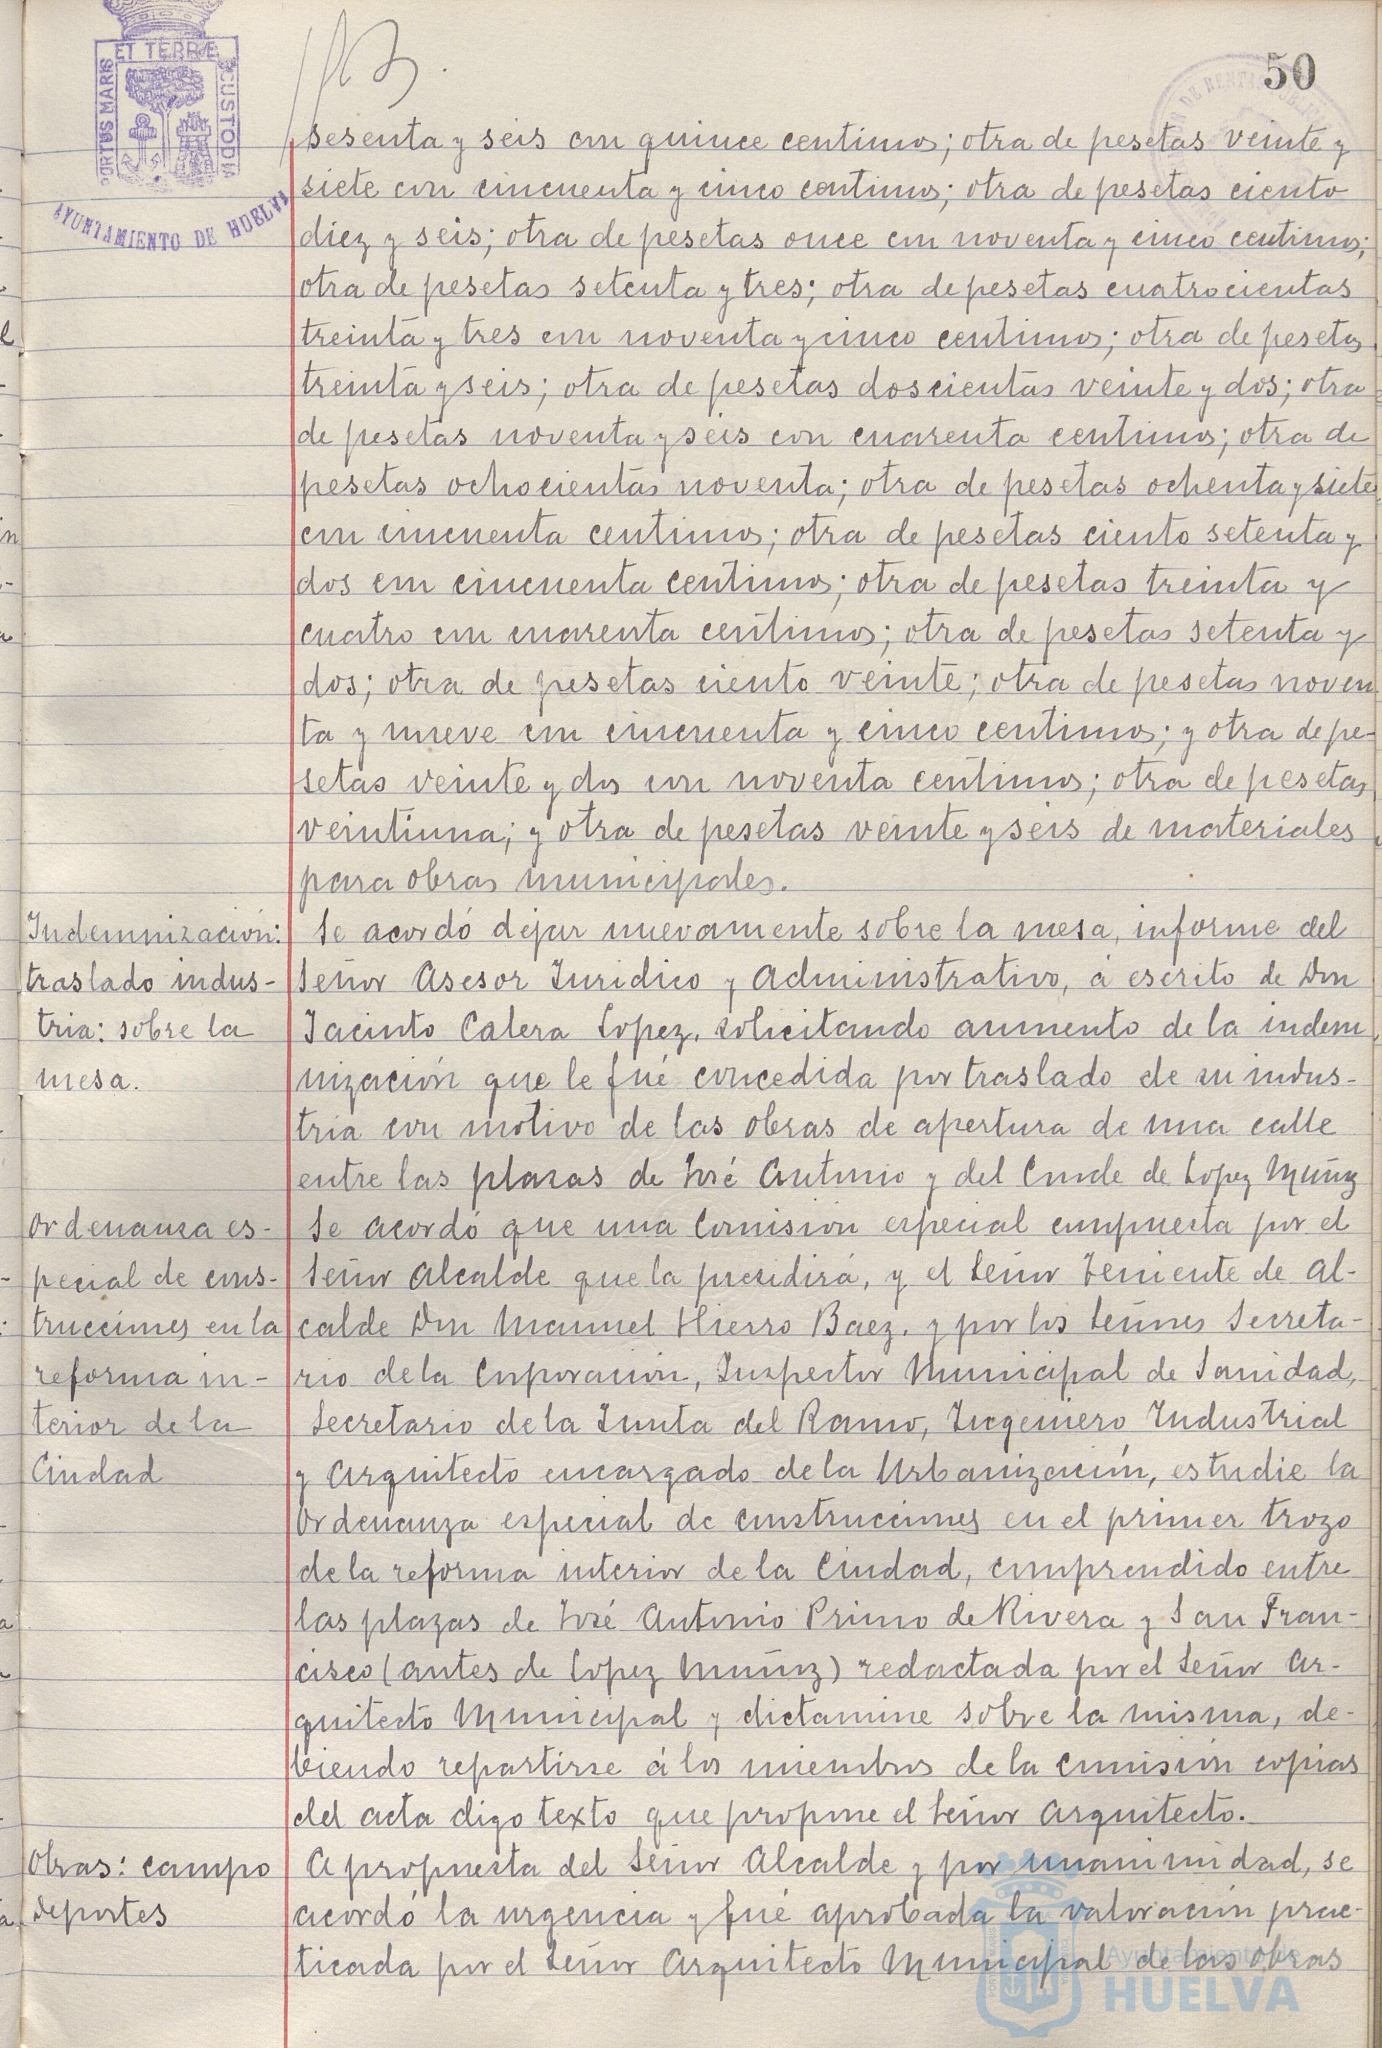 50
PORTUS MARIS ET TERRÆ CUSTODIA
AYUNTAMIENTO DE HUELVA
sesenta y seis con quince centimos; otra de pesetas veinte y
siete con cincuenta y cinco centimos; otra de pesetas ciento
diez y seis; otra de pesetas once con noventa y cinco centimos;
otra de pesetas setenta y tres; otra de pesetas cuatrocientas
treinta y tres con noventa y cinco centimos; otra de pesetas
treinta y seis; otra de pesetas doscientas veinte y dos; otra
de pesetas noventa y seis con cuarenta centimos; otra de
pesetas ochocientas noventa; otra de pesetas ochenta y siete
con cincuenta centimos; otra de pesetas ciento setenta y
dos con cincuenta centimos; otra de pesetas treinta y
cuatro con cuarenta centimos; otra de pesetas setenta y
dos; otra de pesetas ciento veinte; otra de pesetas noven
ta y nueve con cincuenta y cinco centimos; y otra de pe-
setas veinte y dos con noventa centimos; otra de pesetas
veintiuna; y otra de pesetas veinte y seis de materiales
para obras municipales.
Indemnización:
traslado indus-
tria: sobre la
mesa.
Se acordó dejar nuevamente sobre la mesa, informe del
Señor Asesor Juridico y Administrativo, á escrito de Don
Jacinto Calera Lopez, solicitando aumento de la indem
nización que le fué concedida por traslado de su indus-
tria con motivo de las obras de apertura de una calle
entre las plazas de José Antonio y del Conde de Lopez Muñoz
Ordenanza es-
pecial de cons-
trucciones en la
reforma in-
terior de la
Ciudad
Se acordó que una Comisión especial compuesta por el
Señor Alcalde que la presidirá, y el Señor Teniente de Al-
calde Don Manuel Hierro Baez. y por los Señores Secreta-
rio de la Corporación, Inspector Municipal de Sanidad,
Secretario de la Junta del Ramo, Ingeniero Industrial
y Arquitecto encargado de la Urbanización, estudie la
Ordenanza especial de construcciones en el primer trozo
de la reforma interior de la Ciudad, comprendido entre
las plazas de José Antonio Primo de Rivera y San Fran-
cisco (antes de Lopez Muñoz) redactada por el Señor Ar-
quitecto Municipal y dictamine sobre la misma, de-
biendo repartirse á los miembros de la comisión copias
del acta digo texto que propone el Señor Arquitecto.
Obras: campo
Deportes
A propuesta del Señor Alcalde y por unanimidad, se
acordó la urgencia y fué aprobada la valoración prac-
ticada por el Señor Arquitecto Municipal de las obras
Ayuntamiento de
HUELVA